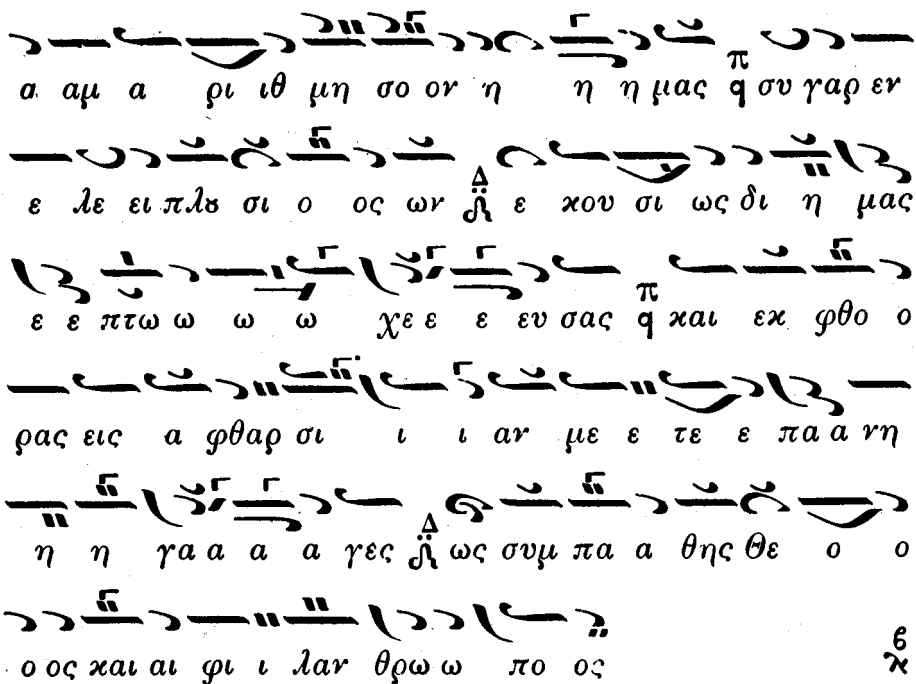 α αμ α ρι ιθ μη σο ον η η η μας π q συ γαρ εν
ε λε ει πλȣ σι ο ος ων Δ ε κου σι ως δι η μας
ε ε πτω ω ω ω χε ε ε ευ σας π q και εκ φθο ο
ρας εις α φθαρ σι ι ι αν με ε τε ε πα α νη
η η γα α α α γες Δ ως συμ πα α θης Θε ο ο
ο ος και αι φι ι λαν θρω ω πο ος